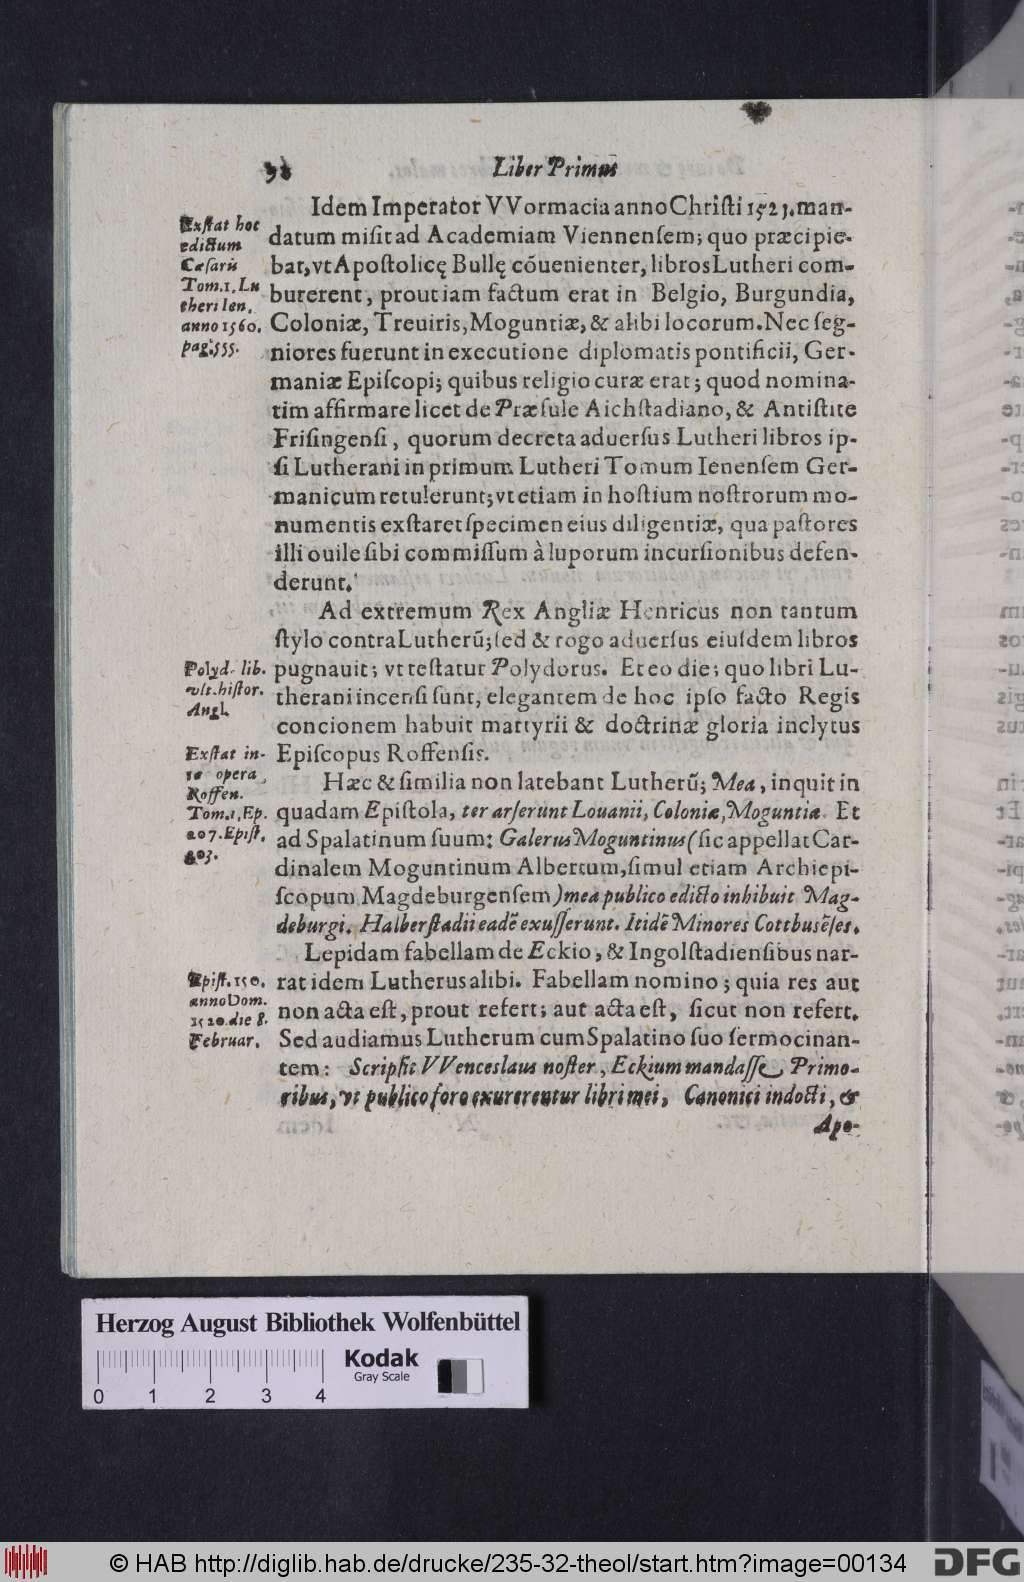 98
Liber Primus
Idem Imperator VVormacia anno Christi 1521. man-
datum misit ad Academiam Viennensem; quo præcipie-
bat, vt Apostolicę Bullę cōuenienter, libros Lutheri com-
burerent, prout iam factum erat in Belgio, Burgundia,
Coloniæ, Treuiris, Moguntiæ, & alibi locorum. Nec seg-
niores fuerunt in executione diplomatis pontificii, Ger-
maniæ Episcopi; quibus religio curæ erat; quod nomina-
tim affirmare licet de Præsule Aichstadiano, & Antistite
Frisingensi, quorum decreta aduersus Lutheri libros ip-
si Lutherani in primum Lutheri Tomum Ienensem Ger-
manicum retulerunt; vt etiam in hostium nostrorum mo-
numentis exstaret specimen eius diligentiæ, qua pastores
illi ouile sibi commissum à luporum incursionibus defen-
derunt.
Exstat hoc
edictum
Cæsaris
Tom. 1. Lu
theri Ien.
anno 1560.
pag. 555.
Ad extremum Rex Angliæ Henricus non tantum
stylo contra Lutherū; sed & rogo aduersus eiusdem libros
pugnauit; vt testatur Polydorus. Et eo die; quo libri Lu-
therani incensi sunt, elegantem de hoc ipso facto Regis
concionem habuit martyrii & doctrinæ gloria inclytus
Episcopus Roffensis.
Polyd. lib.
vlt. histor.
Angl.
Exstat in-
te opera
Roffen.
Hæc & similia non latebant Lutherū; Mea, inquit in
quadam Epistola, ter arserunt Louanii, Coloniæ, Moguntiæ. Et
ad Spalatinum suum: Galerus Moguntinus (sic appellat Car-
dinalem Moguntinum Albertum, simul etiam Archiepi-
scopum Magdeburgensem) mea publico edicto inhibuit Mag-
deburgi. Halberstadii eadē exusserunt. Itidē Minores Cottbusēses.
Tom. 1, Ep.
207. Epist.
203.
Lepidam fabellam de Eckio, & Ingolstadiensibus nar-
rat idem Lutherus alibi. Fabellam nomino; quia res aut
non acta est, prout refert; aut acta est, sicut non refert.
Sed audiamus Lutherum cum Spalatino suo sermocinan-
tem: Scripsit VVenceslaus noster, Eckium mandasse Primo-
ribus, vt publico foro exurerentur libri mei, Canonici indocti, &
Apo-
Epist. 150.
anno Dom.
1520. die 8.
Februar.
Herzog August Bibliothek Wolfenbüttel
Kodak
Gray Scale
0 1 2 3 4
© HAB http://diglib.hab.de/drucke/235-32-theol/start.htm?image=00134
DFG